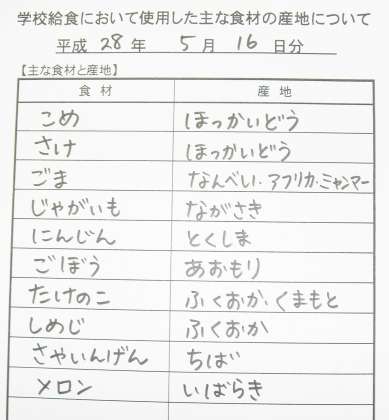 学校給食において使用した主な食材の産地について
平成 28 年 5 月 16 日分
【主な食材と産地】
食 材 産 地
こめ ほっかいどう
さけ ほっかいどう
ごま なんべい・アフリカ・ミャンマー
じゃがいも ながさき
にんじん とくしま
ごぼう あおもり
たけのこ ふくおか、くまもと
しめじ ふくおか
さやいんげん ちば
メロン いばらき